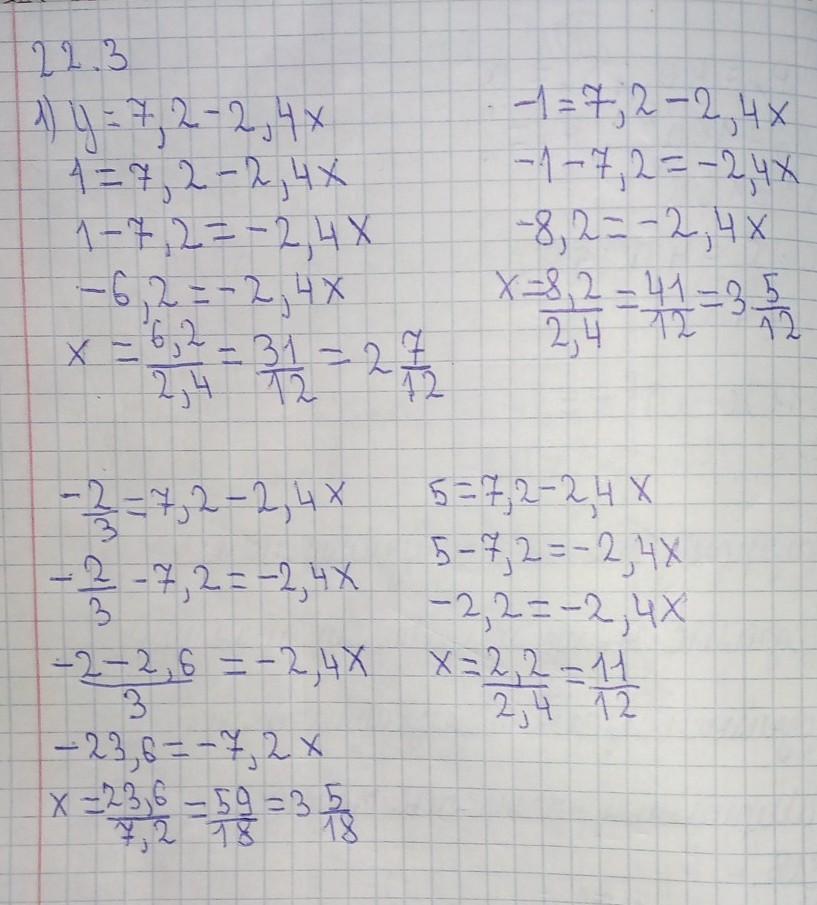 22.3
1) y=7,2-2,4x
1=7,2-2,4x
1-7,2=-2,4x
-6,2=-2,4x
x = 6,2/2,4 = 31/12 = 2 7/12
-1=7,2-2,4x
-1-7,2=-2,4x
-8,2=-2,4x
x=8,2/2,4=41/12=3 5/12
-2/3=7,2-2,4x
-2/3-7,2=-2,4x
(-2-2,6)/3=-2,4x
-23,6=-7,2x
x=23,6/7,2=59/18=3 5/18
5=7,2-2,4x
5-7,2=-2,4x
-2,2=-2,4x
x=2,2/2,4=11/12